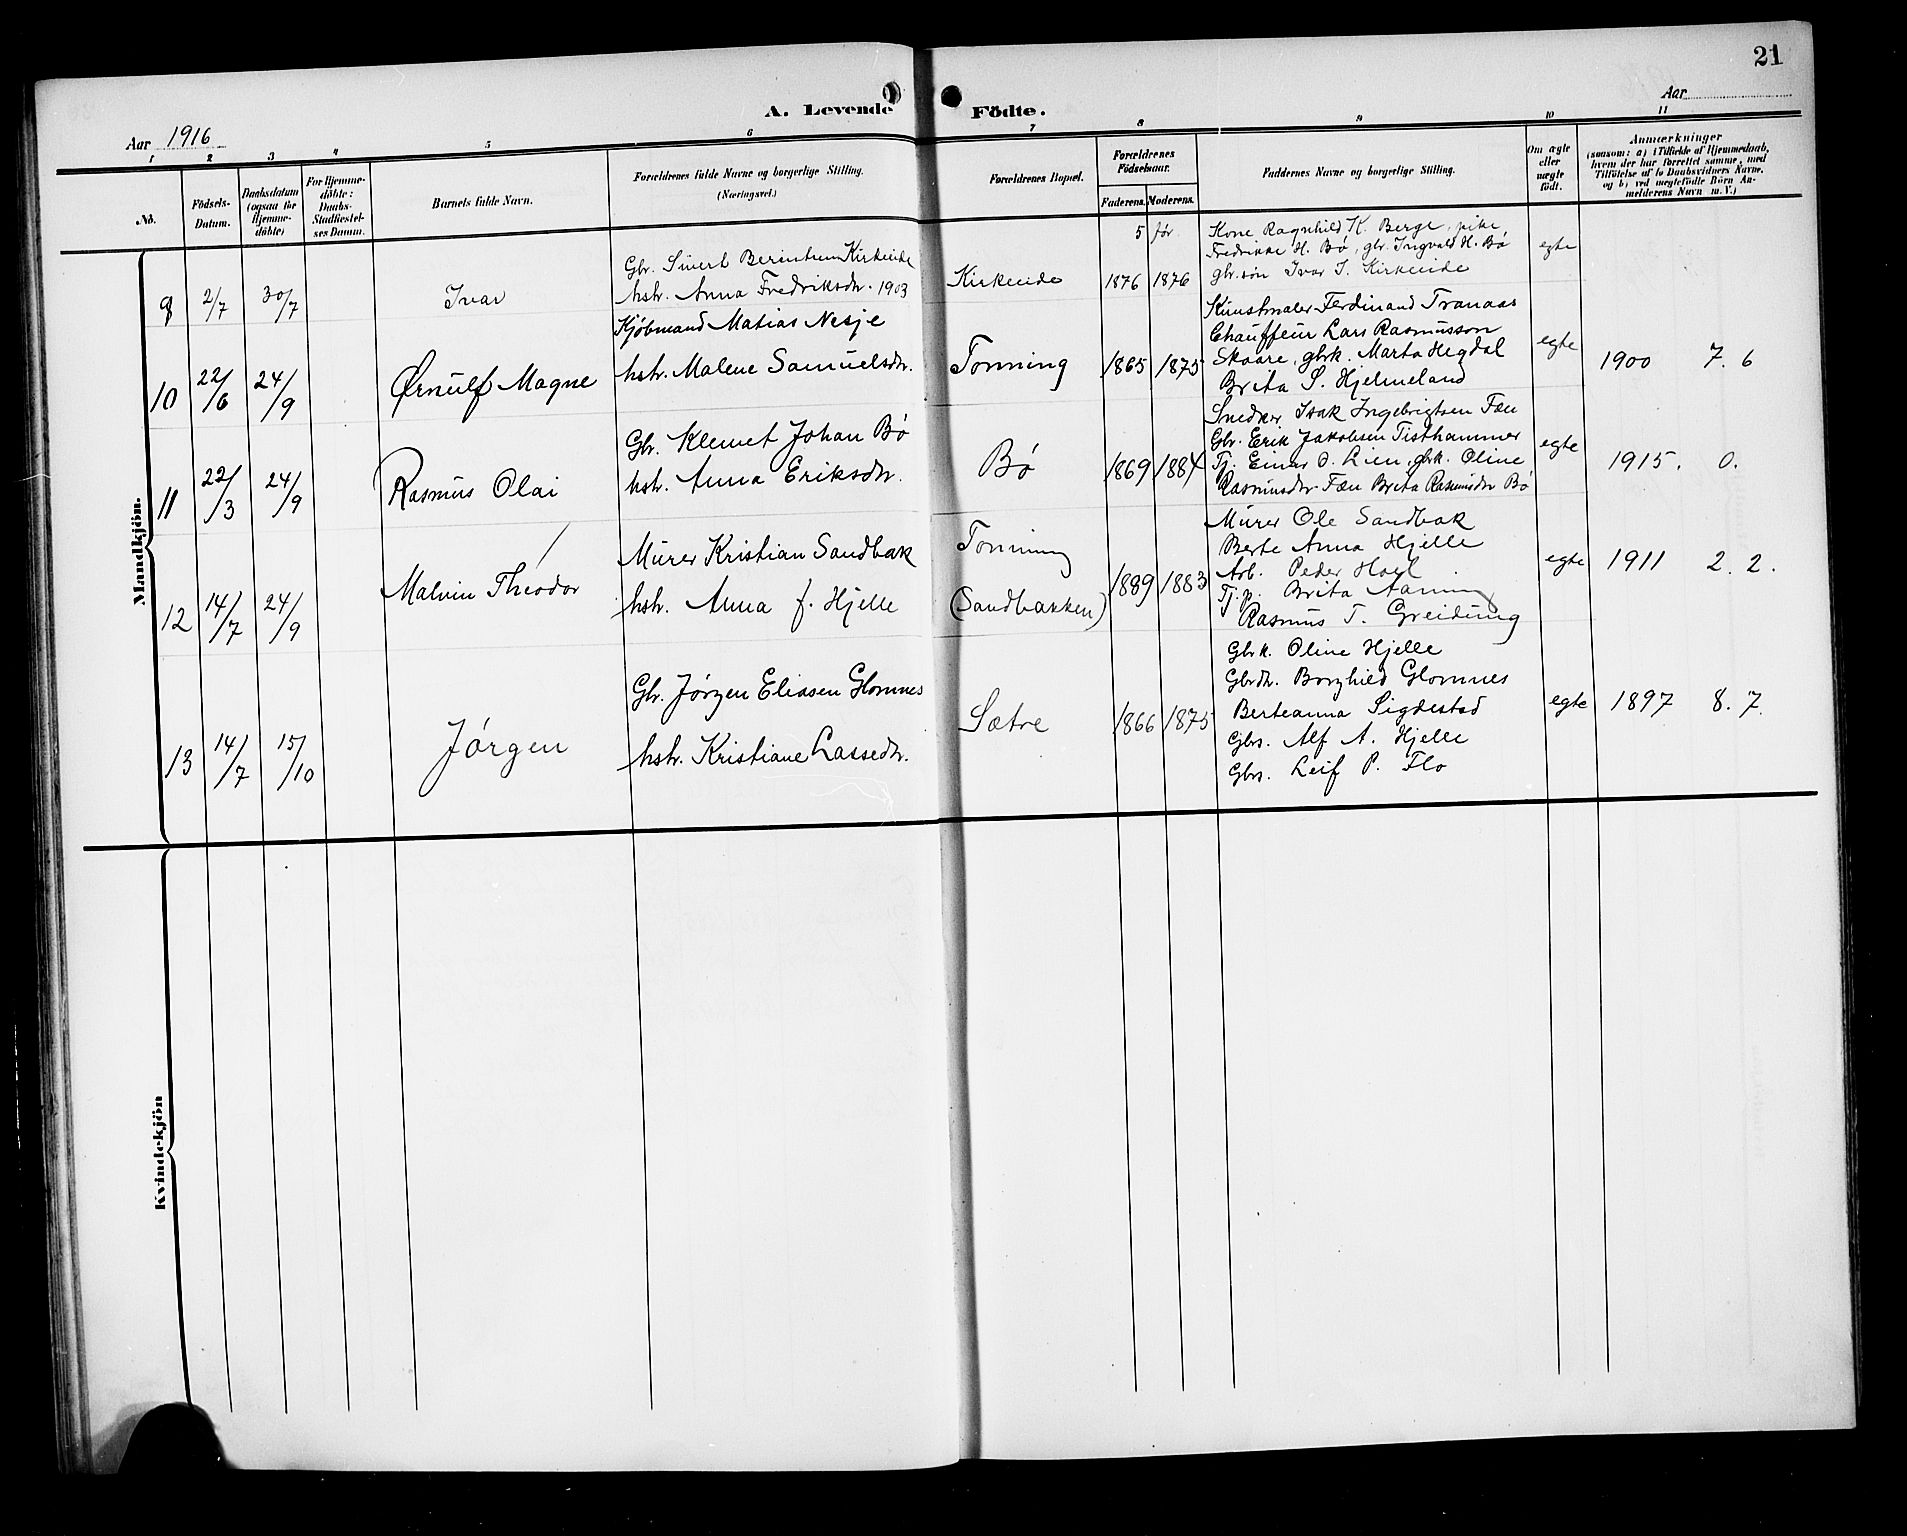 21
A. Levende Födte.
Aar 1916
Aar
1 2 3 4 5 6 7 8 9 10 11
No.
Födsels-Datum.
Daabsdatum (ogsaa for Hjemme-döbte)
For Hjemme-döbte: Daabs-Stadfæstel-ses Datum.
Barnets fulde Navn.
Forældrenes fulde Navne og borgerlige Stilling.
(Næringsvei.)
Forældrenes Bopæl.
Forældrenes Födselsaar.
Faderens. Moderens.
Faddernes Navne og borgerlige Stilling.
Om ægte eller uægte födt.
Anmærkninger
(saasom: a) i Tilfælde af Hjemmedaab,
hvem der har forrettet samme, med
Tilföielse af to Daabsvidners Navne.
og b) ved uægtefödte Börn An-
melderens Navn m. V.)
Mandkjön.
9
2/7
30/7
Ivar
Gbr. Sivert Berentsen Kirkeide
hstr. Anna Fredriksdr. 1903
Kirkeide
5 før
1876 1876
Kone Ragnhild K. Berge, pike
Fredrikke H. Bø, gbr. Ingvald H. Bø
gbr.søn Ivar S. Kirkeide
egte
10
22/6
24/9
Ørnulf Magne
Kjøbmand Matias Nesje
hstr. Malene Samuelsdr.
Tonning
1865 1875
Kunstmaler Ferdinand Tranaas
Chauffeur Lars Rasmusson
Skaare, gbrk. Marta Hegdal
Brita S. Hjelmeland
egte
1900 7. 6
11
22/3
24/9
Rasmus Olai
Gbr. Klemet Johan Bø
hstr. Anna Eriksdr.
Bø
1869 1884
Snedker Isak Ingebrigtsen Fæn
Gbr. Erik Jakobsen Tisthammer
Tj. Einar O. Lien, gbrk. Oline
Rasmusdr. Fæn Brita Rasmusdr Bø
egte
1915. 0.
12
14/7
24/9
Malvin Theodor
Murer Kristian Sandbak
hstr. Anna f. Hjelle
Tonning
(Sandbakken)
1889 1883
Murer Ole Sandbak
Berte Anna Hjelle
Arb. Peder
Tj.p. Brita Aaning
Rasmus T. Greidung
egte
1911 2. 2.
13
14/7
15/10
Jørgen
Gbr. Jørgen Eliasen Glomnes
hstr. Kristiane Lassedr.
Sætre
1866 1875
Gbrk. Oline Hjelle
Gbrdtr. Borghild Glomnes
Berteanna Sigdestad
Gbrs. Alf A. Hjelle
Gbrs. Leif P. Flo
egte
1897 8. 7.
Kvindekjön